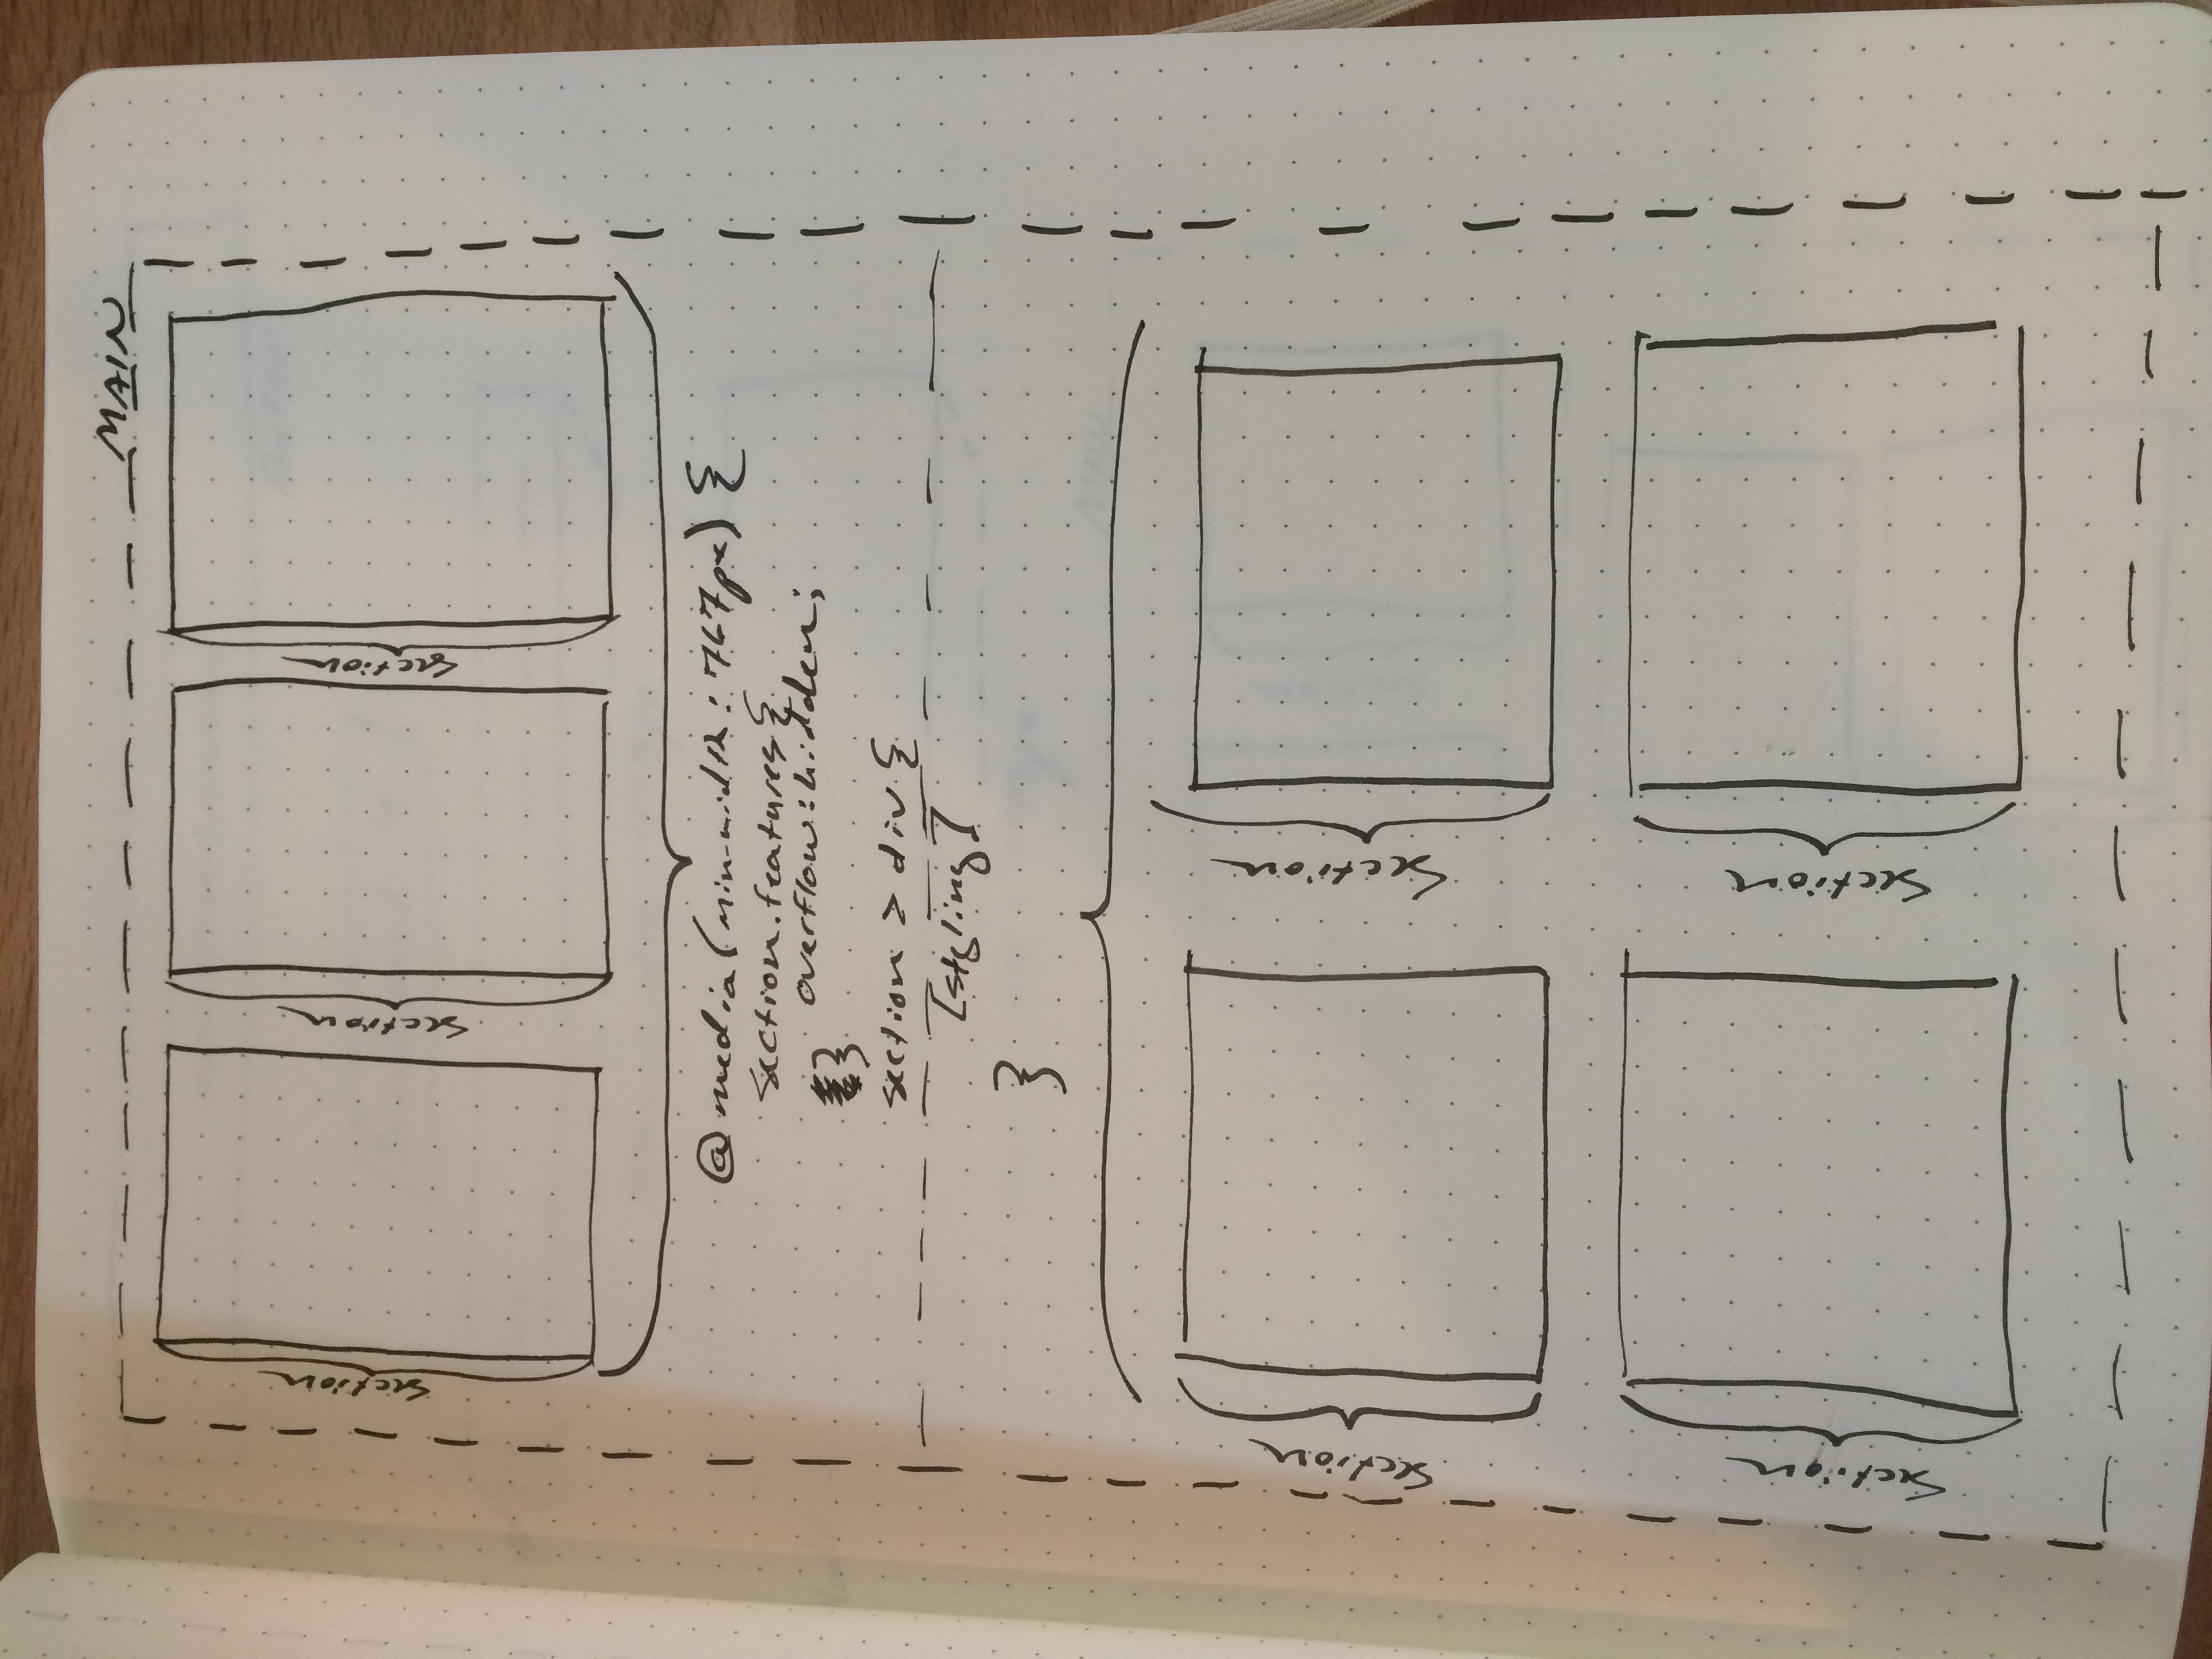 MAIN
Section
Section
Section
@media (min-width: 767px) {
section.features {
overflow: hidden;
}
section > div {
[styling]
}
Section
Section
Section
Section